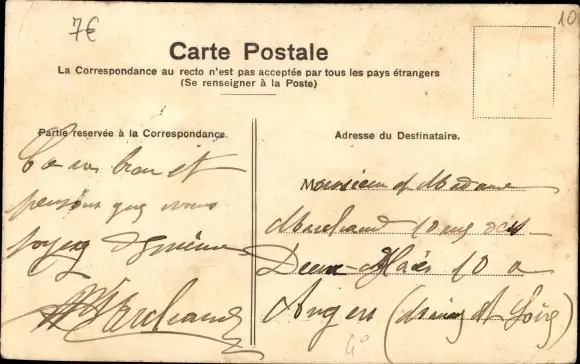 7€
10
Carte Postale
La Correspondance au recto n'est pas acceptée par tous les pays étrangers
(Se renseigner à la Poste)
Partie reservée à la Correspondance.
Adresse du Destinataire.
Ca va bien et
pensons que vous
soyez de même
Marchand
Monsieur et Madame
Marchand 10 rue des
Deux-Haies 10 a
Angers (Maine et Loire)